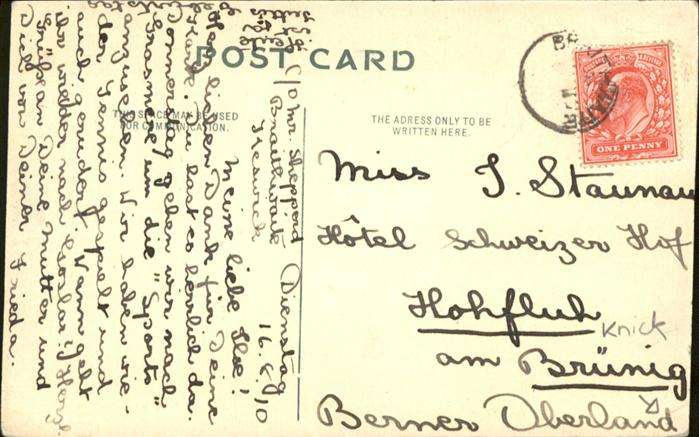 POST CARD
THIS SPACE MAY BE USED
FOR COMMUNICATION.
THE ADRESS ONLY TO BE
WRITTEN HERE.
ONE PENNY
Miss I. Staunau
Hôtel Schweizer Hof
Hohfluh
Knick
am Brünig
Berner Oberland
C/o Mr. Sheppard Dienstag
Braithwaite 16.8.10
Keswick
Meine liebe Ilse!
Vielen lieben Dank für Deine
Karte. Du hast es herrlich da.
Donnerstag gehen wir nach
Grasmere um die "Sports"
anzusehen. Wir haben wie-
der Tennis gespielt und
auch gerudert. Wann geht
ihr wieder nach Goslar? Herzl.
Grüße an Deine Mutter und
Dich von Deiner Frieda.